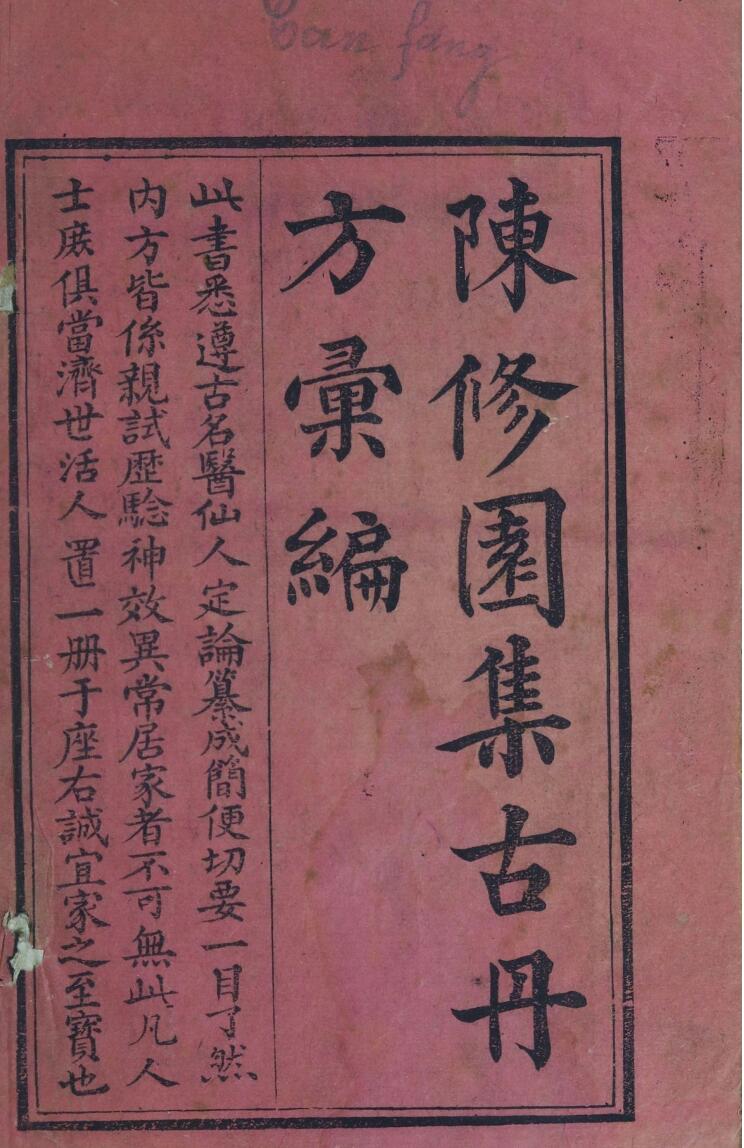 Tan fang
陳修園集古丹
方彙編
此書悉遵古名醫仙人定論纂成簡便切要一目了然
内方皆係親試歴騐神效異常居家者不可無此凡人
士庶俱當濟世活人置一册于座右誠宜家之至寳也